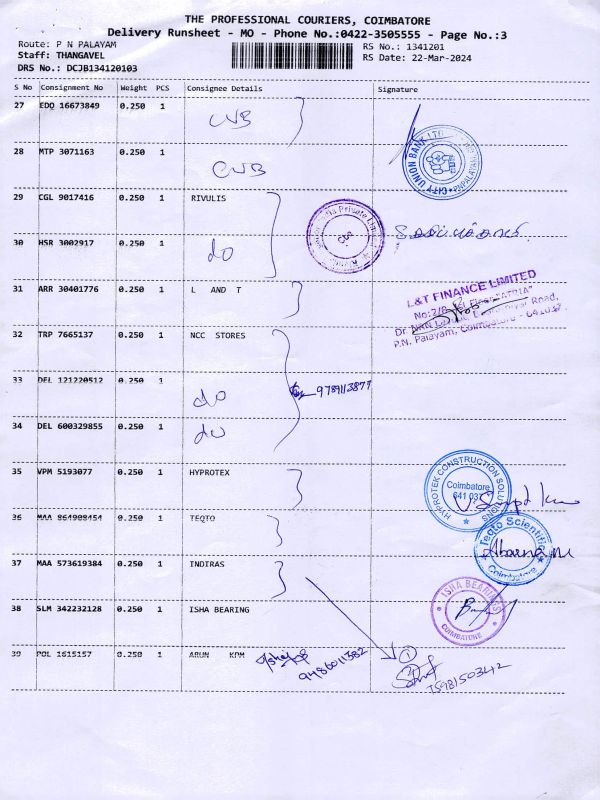 THE PROFESSIONAL COURIERS, COIMBATORE
Delivery Runsheet - MO - Phone No.:0422-3505555 - Page No.:3
Route: P N PALAYAM
RS No.: 1341201
Staff: THANGAVEL
RS Date: 22-Mar-2024
DRS No.: DCJB134120103
S No Consignment No Weight PCS Consignee Details Signature
27 EDQ 16673849 0.250 1 CUB
28 MTP 3071163 0.250 1 CUB
CITY UNION BANK LTD
29 CGL 9017416 0.250 1 RIVULIS
30 HSR 3002917 0.250 1 do
31 ARR 30401776 0.250 1 L AND T
L&T FINANCE LIMITED
No:2/8, 1st Floor "ATRIA"
Road,
P.N. Palayam, Coimbatore - 641037
32 TRP 7665137 0.250 1 NCC STORES
33 DEL 121220512 0.250 1 do
34 DEL 600329855 0.250 1 do
35 VPM 5193077 0.250 1 HYPROTEX
HYPROTEK CONSTRUCTION SOLUTIONS
Coimbatore
641 037
36 MAA 864908454 0.250 1 TEQTO
Teqto Scientific
Coimbatore
37 MAA 573619384 0.250 1 INDIRAS
38 SLM 342232128 0.250 1 ISHA BEARING
ISHA BEARINGS
COIMBATORE
39 POL 1615157 0.250 1 ARUN KPM
9486011382
1